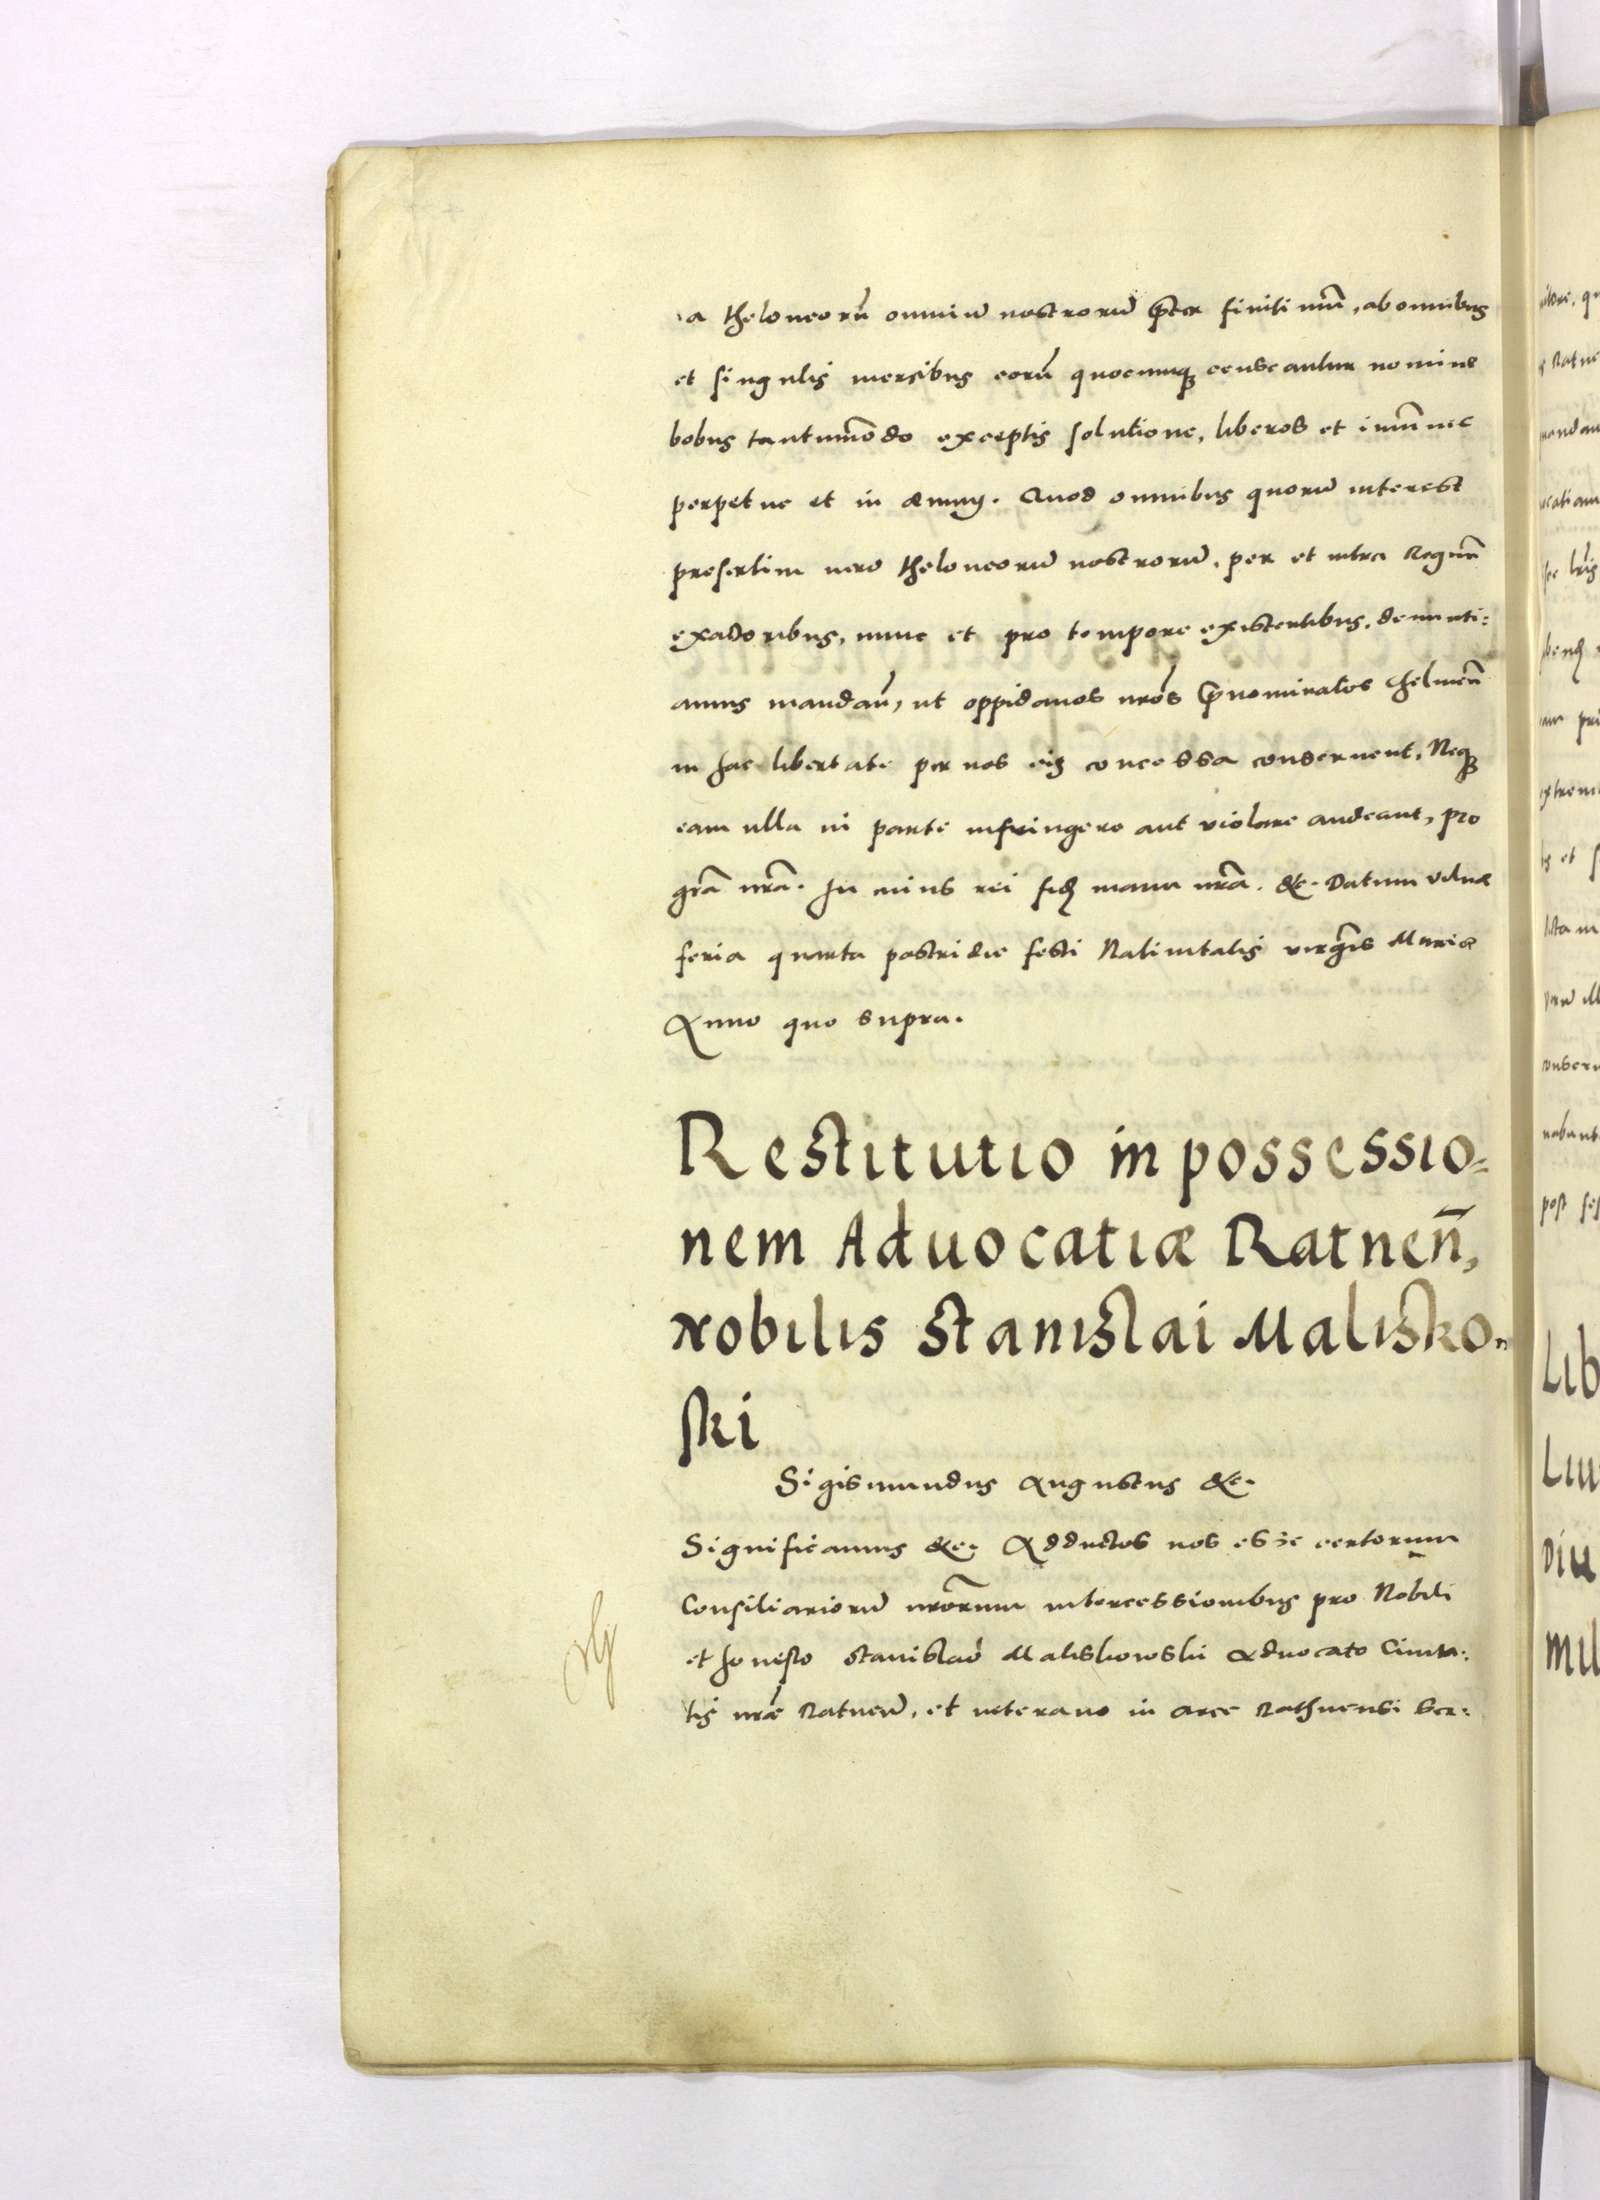 a theloneorū omniū nostrorū p̄ter finitimū, ab omnibus
et singulis mercibus eorū quocunqȝ censeantur nomine
bobus tantum̄odo exceptis solutione, liberos et imūnes
perpetue et in ævum. Quod omnibus quorū interest
presertim vero theloneorū nostrorū, per et intra Regnū
exactoribus, nunc et pro tempore existentibus, denunti:
amus mandañ, ut oppidanos nr̄os p̄nominatos Chelmeñ
in hac libertate per nos eis concessa conservent, Neqȝ
eam ulla in parte infringere aut violare audeant, pro
gr̄a nr̄a. In cuius rei fidȝ manu nr̄a. &c. Datum Vilnæ
feria quarta postridie festi Nativitatis virgīs Mariæ
Anno quo supra.
Restitutio in possessio=
nem Aduocatiæ Ratneñ,
nobilis Stanislai Malisko=
ski
Sigismundus Augustus &c.
Significamus &c. Adductos nos esse certorum
Consiliariorū nr̄orum intercessionibus pro Nobili
et honesto Stanislao Maliskowski Advocato Civita:
tis nr̄æ Ratneñ, et veterano in arce Rathnensi ser: